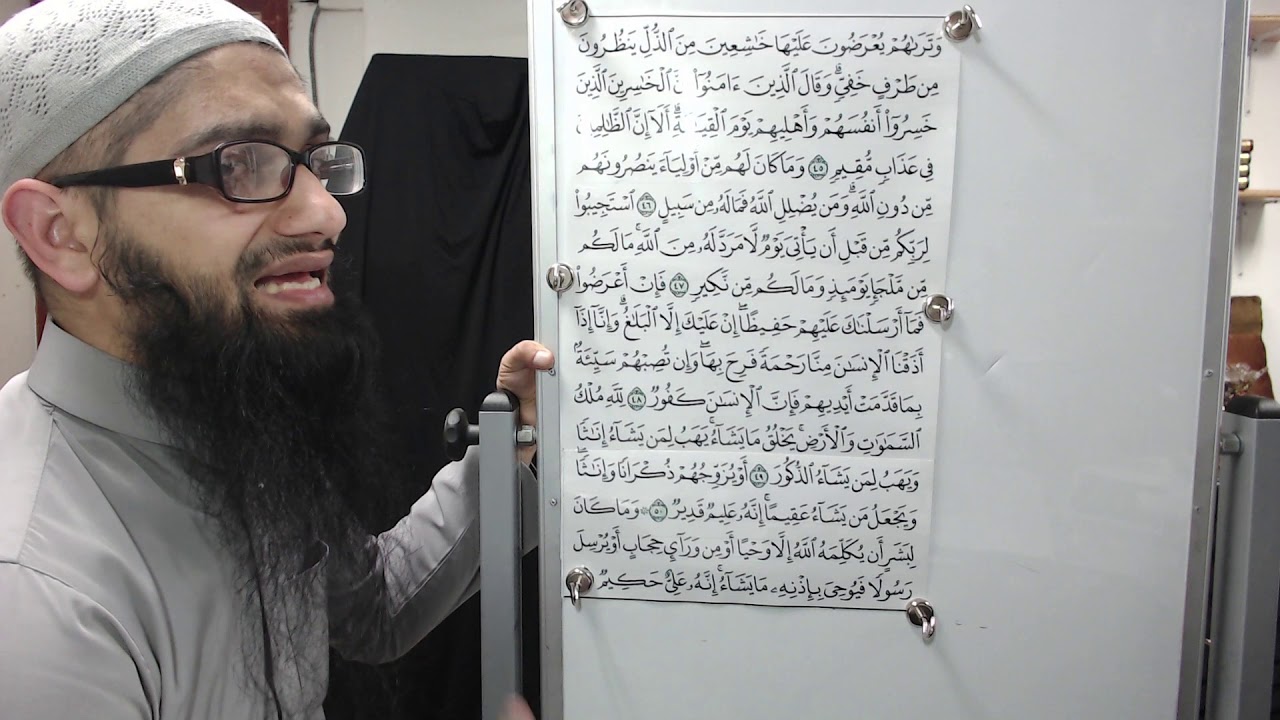 وَتَرَىٰهُمْ يُعْرَضُونَ عَلَيْهَا خَٰشِعِينَ مِنَ ٱلذُّلِّ يَنظُرُونَ
مِن طَرْفٍ خَفِىٍّ ۗ وَقَالَ ٱلَّذِينَ ءَامَنُوٓا۟ ٱلْخَٰسِرِينَ ٱلَّذِينَ
خَسِرُوٓا۟ أَنفُسَهُمْ وَأَهْلِيهِمْ يَوْمَ ٱلْقِيَٰمَةِ ۗ أَلَآ إِنَّ ٱلظَّٰلِمِينَ
فِى عَذَابٍ مُّقِيمٍ ٤٥ وَمَا كَانَ لَهُم مِّنْ أَوْلِيَآءَ يَنصُرُونَهُم
مِّن دُونِ ٱللَّهِ ۗ وَمَن يُضْلِلِ ٱللَّهُ فَمَا لَهُۥ مِن سَبِيلٍ ٤٦ ٱسْتَجِيبُوا۟
لِرَبِّكُم مِّن قَبْلِ أَن يَأْتِىَ يَوْمٌ لَّا مَرَدَّ لَهُۥ مِنَ ٱللَّهِ ۚ مَا لَكُم
مِّن مَّلْجَإٍ يَوْمَئِذٍ وَمَا لَكُم مِّن نَّكِيرٍ ٤٧ فَإِنْ أَعْرَضُوا۟
فَمَآ أَرْسَلْنَٰكَ عَلَيْهِمْ حَفِيظًا ۖ إِنْ عَلَيْكَ إِلَّا ٱلْبَلَٰغُ ۗ وَإِنَّآ إِذَآ
أَذَقْنَا ٱلْإِنسَٰنَ مِنَّا رَحْمَةً فَرِحَ بِهَا ۖ وَإِن تُصِبْهُمْ سَيِّئَةٌۢ
بِمَا قَدَّمَتْ أَيْدِيهِمْ فَإِنَّ ٱلْإِنسَٰنَ كَفُورٌ ٤٨ لِّلَّهِ مُلْكُ
ٱلسَّمَٰوَٰتِ وَٱلْأَرْضِ ۚ يَخْلُقُ مَا يَشَآءُ ۚ يَهَبُ لِمَن يَشَآءُ إِنَٰثًا
وَيَهَبُ لِمَن يَشَآءُ ٱلذُّكُورَ ٤٩ أَوْ يُزَوِّجُهُمْ ذُكْرَانًا وَإِنَٰثًا ۖ
وَيَجْعَلُ مَن يَشَآءُ عَقِيمًا ۚ إِنَّهُۥ عَلِيمٌ قَدِيرٌ ٥٠ وَمَا كَانَ
لِبَشَرٍ أَن يُكَلِّمَهُ ٱللَّهُ إِلَّا وَحْيًا أَوْ مِن وَرَآئِ حِجَابٍ أَوْ يُرْسِلَ
رَسُولًا فَيُوحِىَ بِإِذْنِهِۦ مَا يَشَآءُ ۚ إِنَّهُۥ عَلِىٌّ حَكِيمٌ